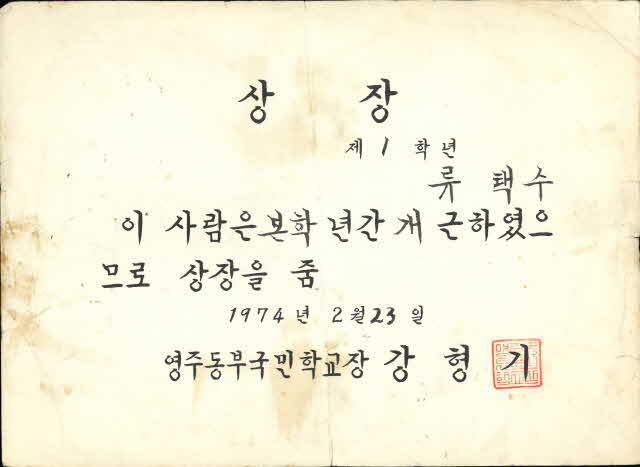 상 장
제 1 학년
류 택수
이 사람은 본학년간 개근하였으
므로 상장을 줌
1974년 2월 23일
영주동부국민학교장 강 형 기